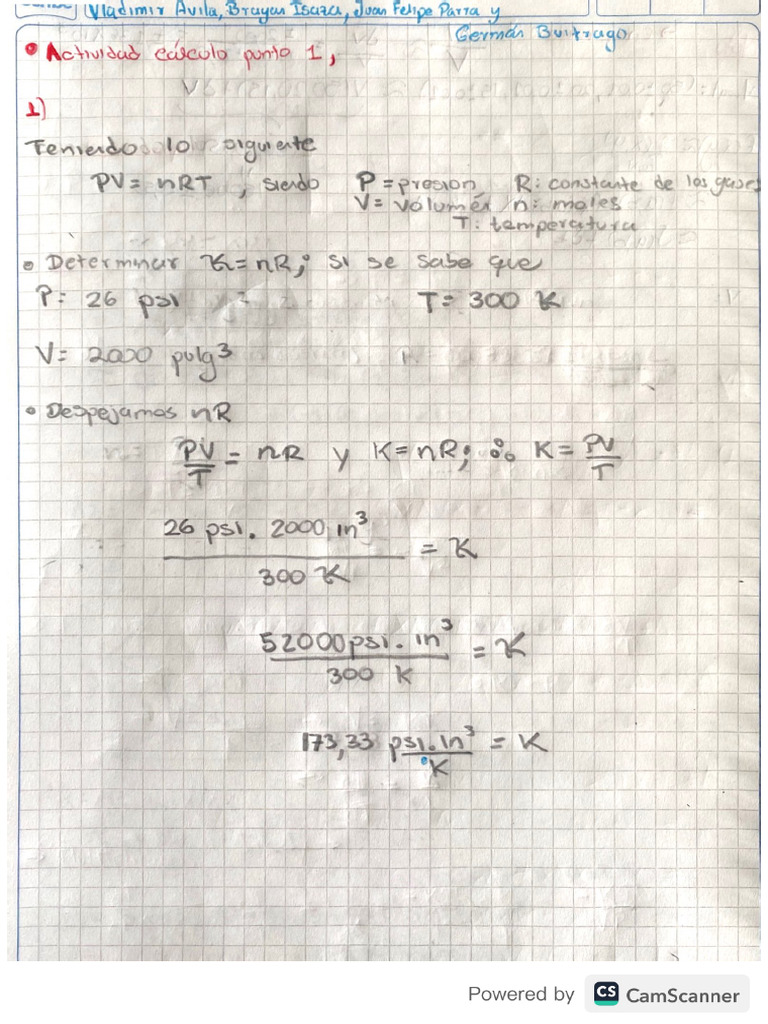 Vladimir Avila, Brayan Isaza, Juan Felipe Parra y
Germán Buitrago
• Actividad cálculo punto 1,
1)
Teniendo lo siguiente
PV = nRT, siendo P = presion R: constante de los gases
V = volumen n: moles
T: temperatura
• Determinar K = nR; si se sabe que
P: 26 psi T = 300 K
V = 2000 pulg³
• Despejamos nR
PV/T = nR y K = nR; ∴ K = PV/T
26 psi. 2000 in³ / 300 K = K
52000 psi. in³ / 300 K = K
173,33 psi.in³/°K = K
Powered by CS CamScanner